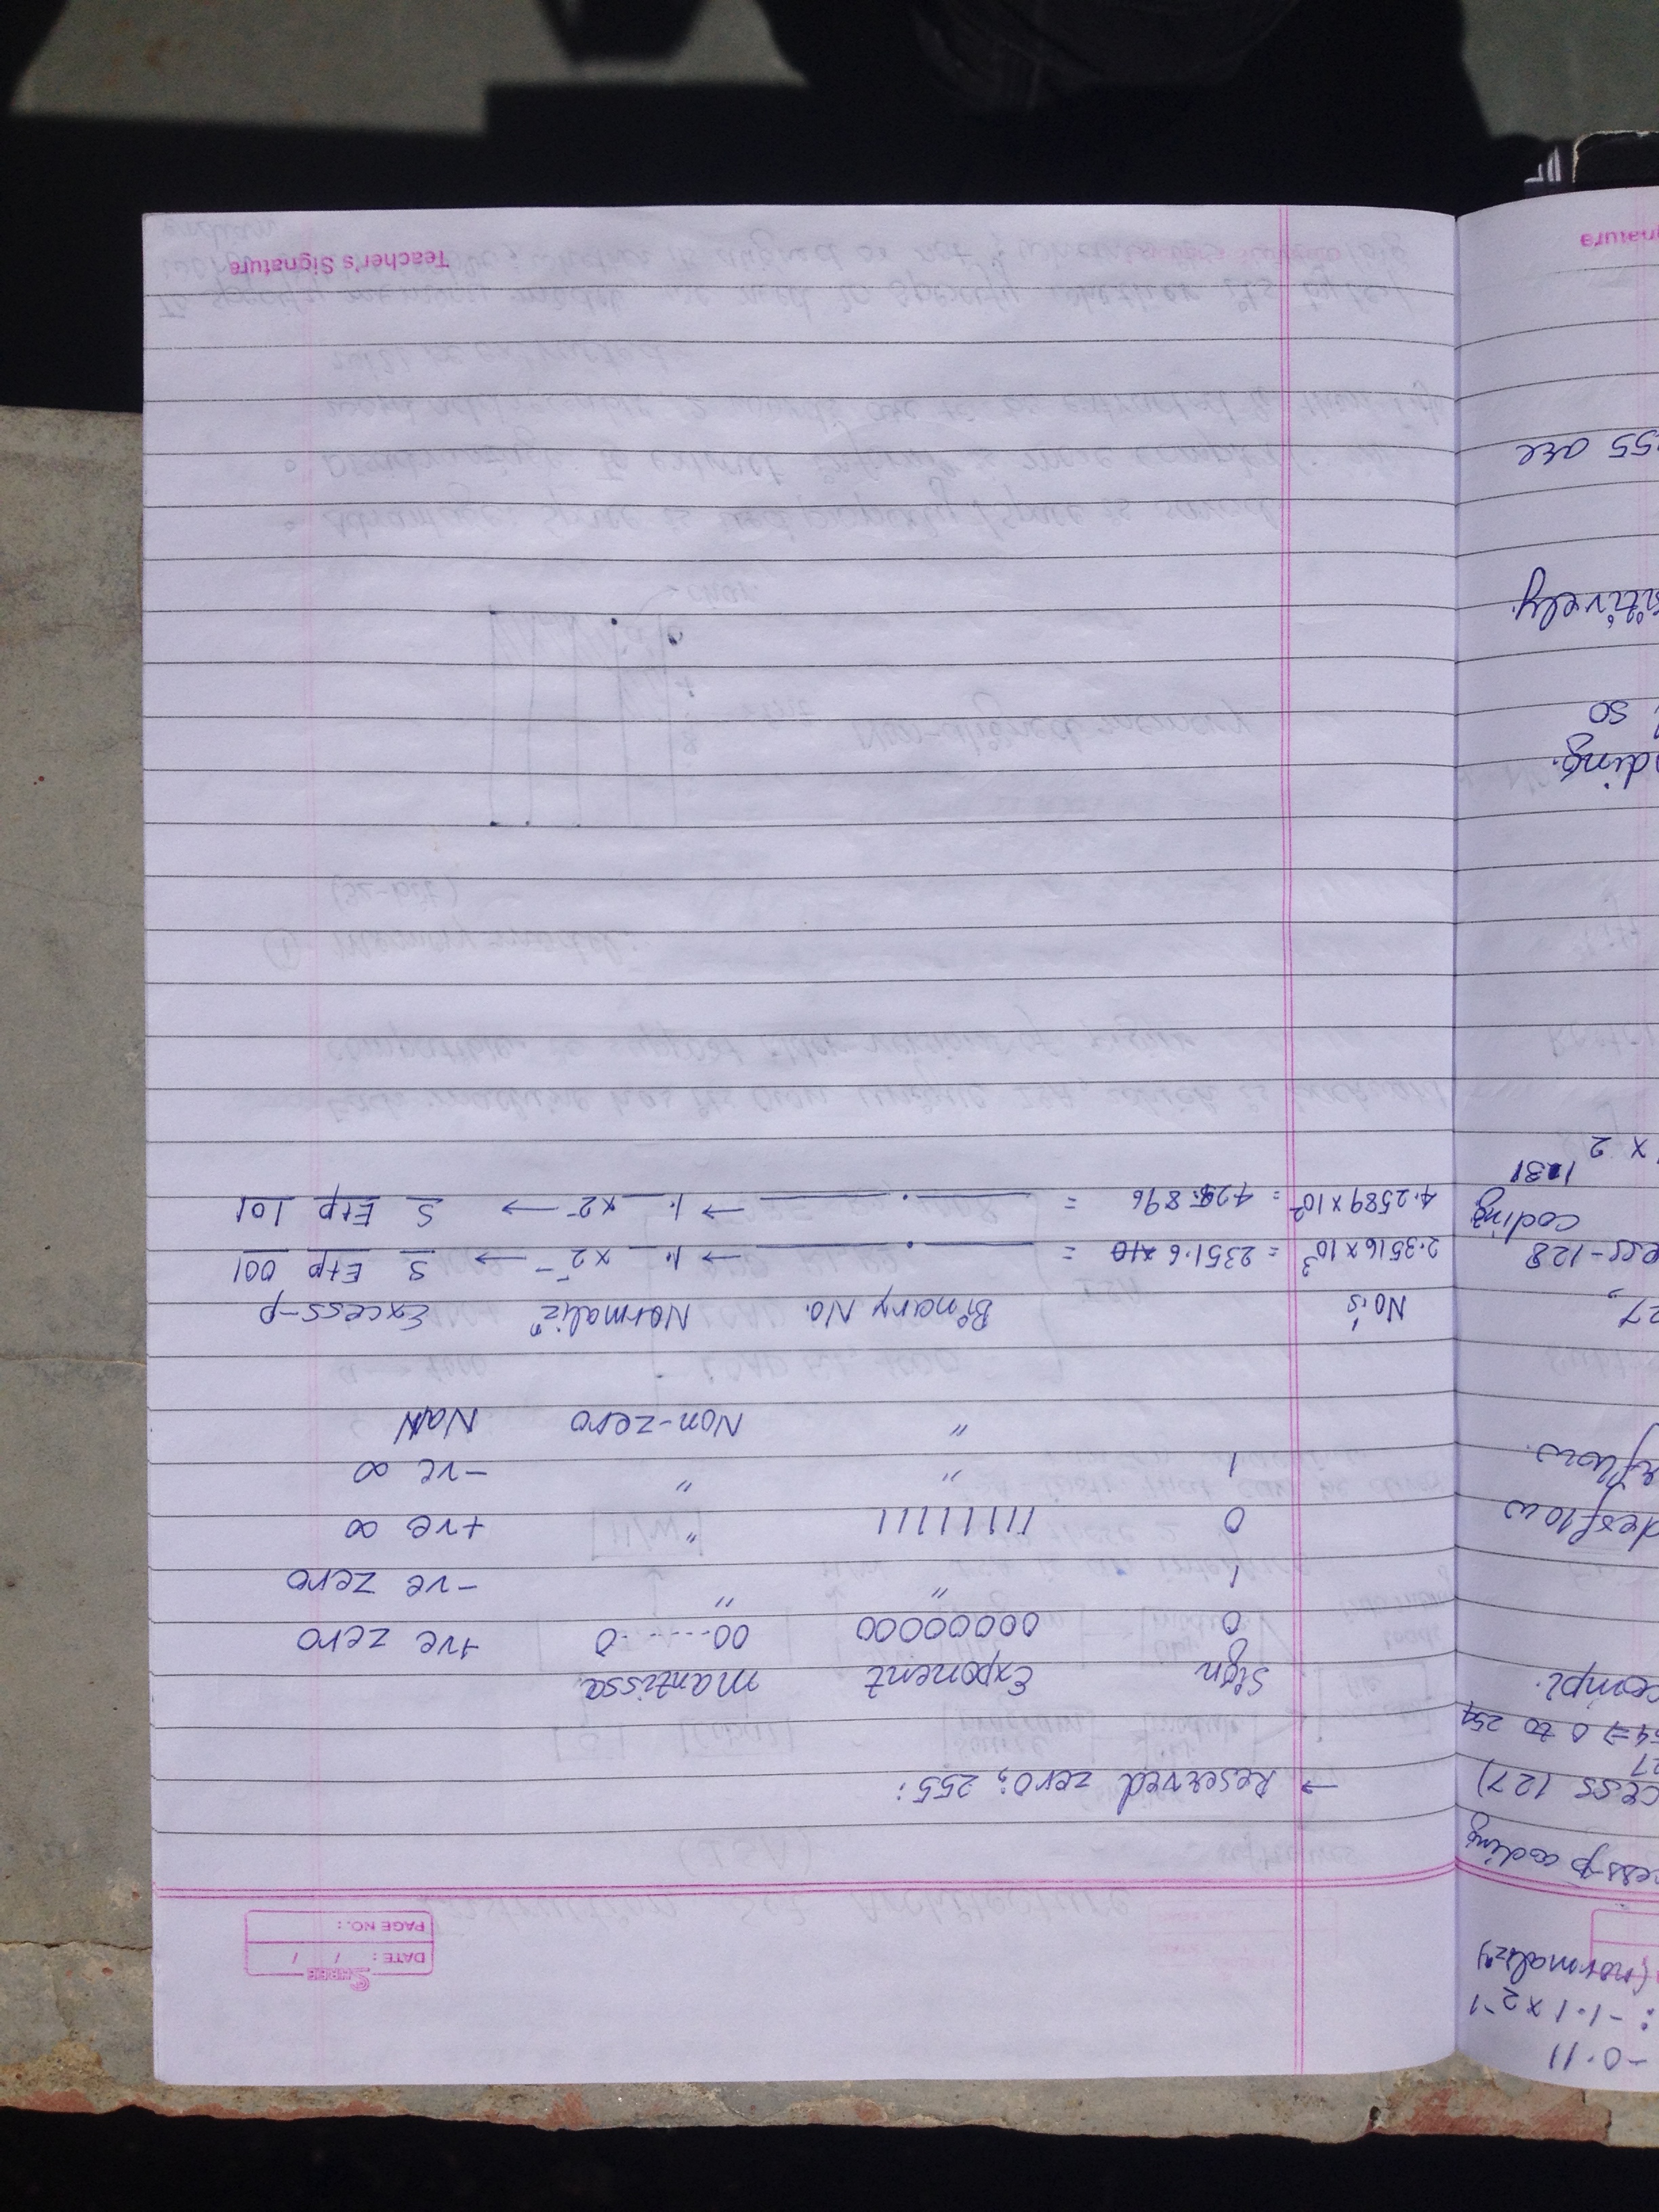 -0.11
: -1.1 × 2⁻¹
(normalizⁿ)
cess-p coding
cess 127)
27
54 ⇒ 0 to 254
compl.
derflow
rflow.
27,
ess-128
coding
× 2¹³¹
ding.
so
sitively.
55 are
gnature
SHREE
DATE : / /
PAGE NO. :
→ Reserved zero; 255:
Sign Exponent Mantissa
0 00000000 00-----0 +ve zero
1 " " -ve zero
0 11111111 " +ve ∞
1 " " -ve ∞
" Non-zero NaN
No.'s Binary No. Normalizⁿ Excess-p
2.3516 × 10³ = 2351.6 ×10 = ____ . ____ → 1.__ × 2⁻⁻ → S E+p 001
4.2589 × 10² = 425.896 = ____ . ____ → 1.__ × 2⁻ → S E+p 101
Teacher's Signature